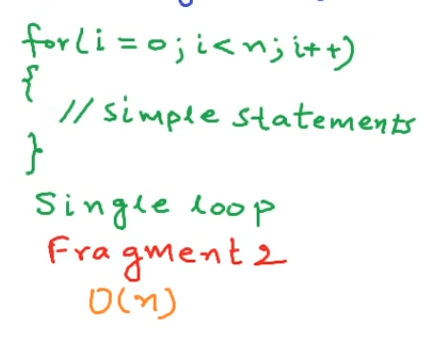 for(i = 0; i<n; i++)
{
// simple statements
}
Single loop
Fragment 2
O(n)